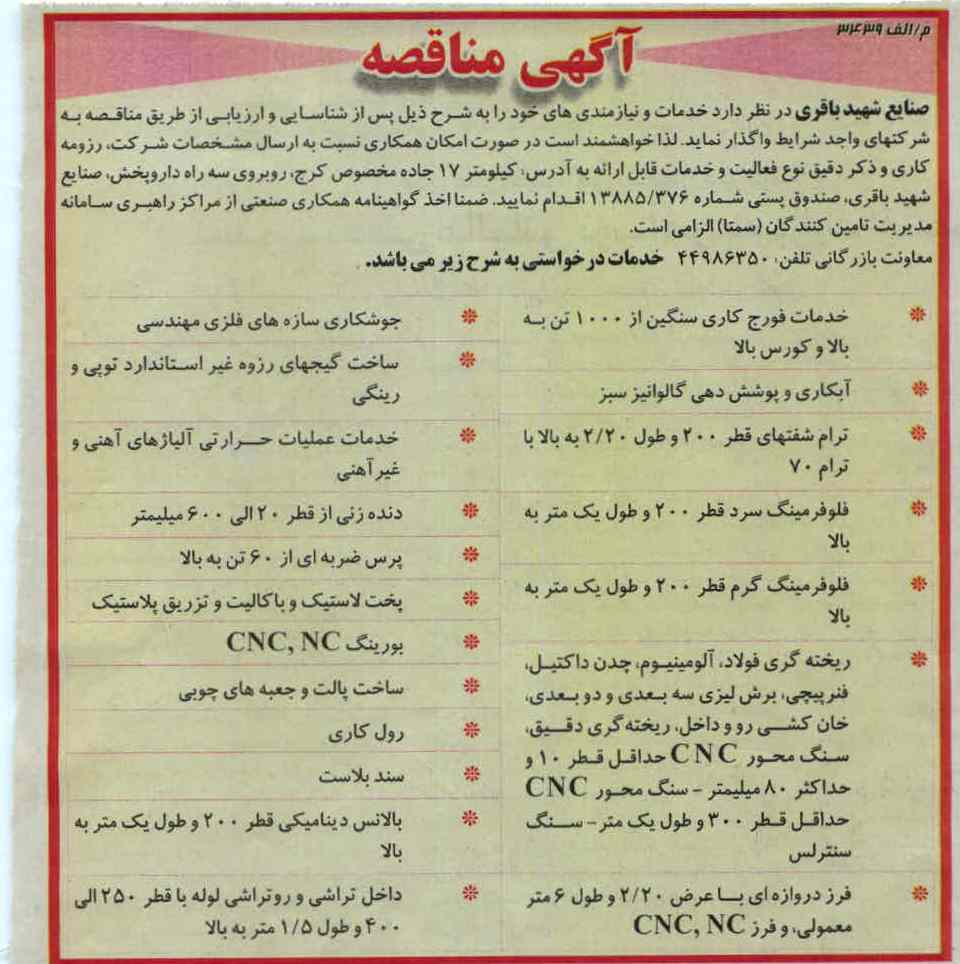 م/الف ۳۴۳۹
آگهی مناقصه
صنایع شهید باقری در نظر دارد خدمات و نیازمندی های خود را به شرح ذیل پس از شناسایی و ارزیابی از طریق مناقصه به
شرکتهای واجد شرایط واگذار نماید. لذا خواهشمند است در صورت امکان همکاری نسبت به ارسال مشخصات شرکت، رزومه
کاری و ذکر دقیق نوع فعالیت و خدمات قابل ارائه به آدرس: کیلومتر ۱۷ جاده مخصوص کرج، روبروی سه راه داروپخش، صنایع
شهید باقری، صندوق پستی شماره ۱۳۸۸۵/۳۷۶ اقدام نمایید. ضمنا اخذ گواهینامه همکاری صنعتی از مراکز راهبری سامانه
مدیریت تامین کنندگان (سمتا) الزامی است.
معاونت بازرگانی تلفن: ۴۴۹۸۶۳۵۰ خدمات درخواستی به شرح زیر می باشد.
خدمات فورج کاری سنگین از ۱۰۰۰ تن به
بالا و کورس بالا
آبکاری و پوشش دهی گالوانیز سبز
ترام شفتهای قطر ۲۰۰ و طول ۲/۲۰ به بالا با
ترام ۷۰
فلوفرمینگ سرد قطر ۲۰۰ و طول یک متر به
بالا
فلوفرمینگ گرم قطر ۲۰۰ و طول یک متر به
بالا
ریخته گری فولاد، آلومینیوم، چدن داکتیل،
فنرپیچی، برش لیزی سه بعدی و دو بعدی،
خان کشی رو و داخل، ریخته گری دقیق،
سنگ محور CNC حداقل قطر ۱۰ و
حداکثر ۸۰ میلیمتر - سنگ محور CNC
حداقل قطر ۳۰۰ و طول یک متر - سنگ
سنترلس
فرز دروازه ای با عرض ۲/۲۰ و طول ۶ متر
معمولی، و فرز CNC, NC
جوشکاری سازه های فلزی مهندسی
ساخت گیجهای رزوه غیر استاندارد توپی و
رینگی
خدمات عملیات حرارتی آلیاژهای آهنی و
غیر آهنی
دنده زنی از قطر ۲۰ الی ۶۰۰ میلیمتر
پرس ضربه ای از ۶۰ تن به بالا
پخت لاستیک و باکالیت و تزریق پلاستیک
بورینگ CNC, NC
ساخت پالت و جعبه های چوبی
رول کاری
سند بلاست
بالانس دینامیکی قطر ۲۰۰ و طول یک متر به
بالا
داخل تراشی و روتراشی لوله با قطر ۲۵۰ الی
۴۰۰ و طول ۱/۵ متر به بالا